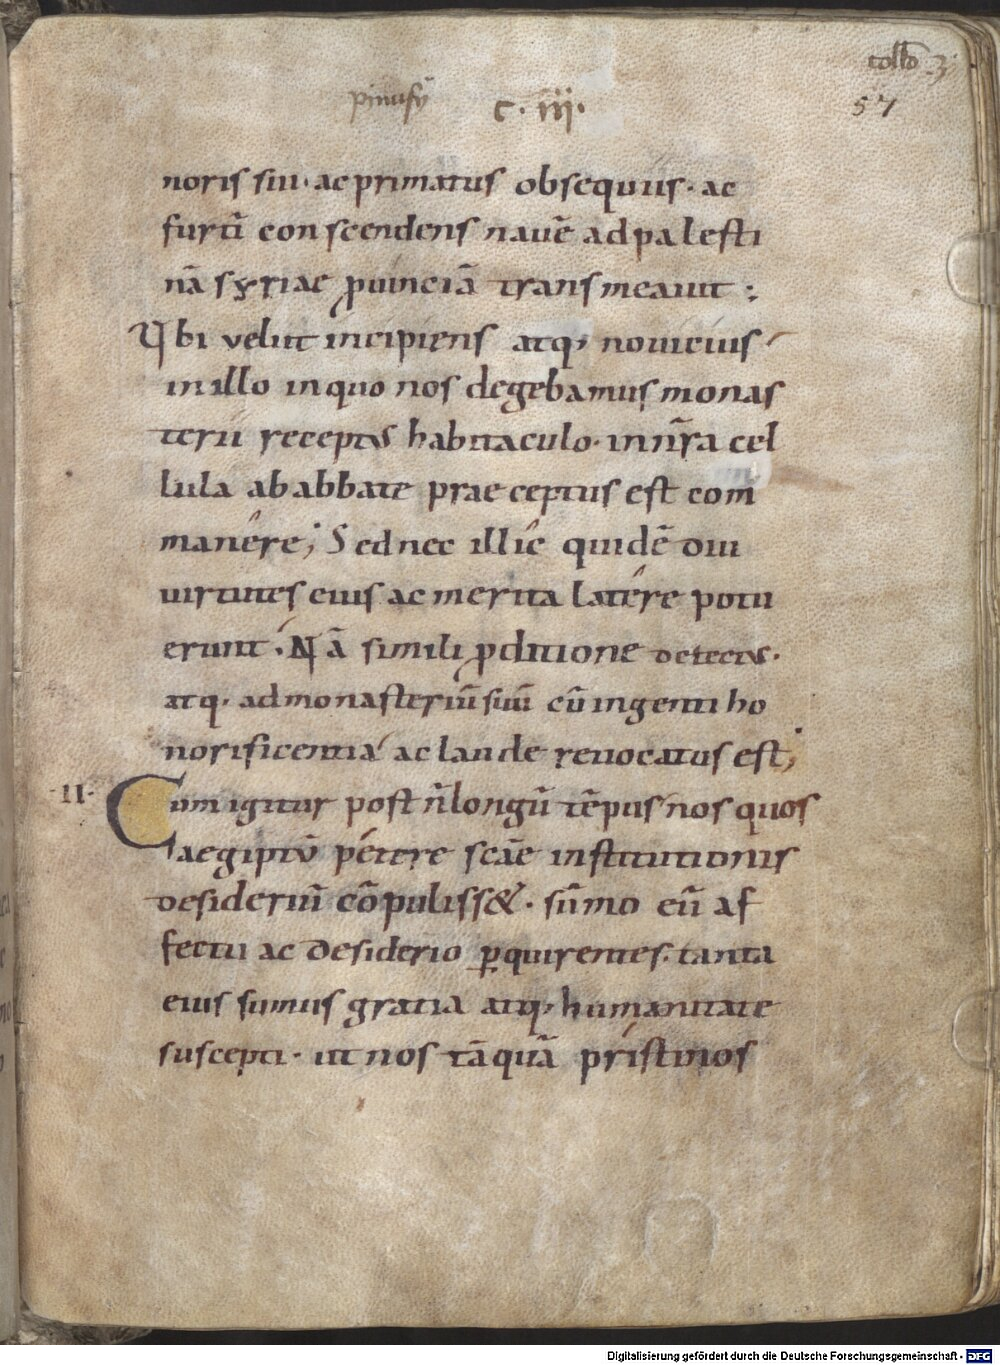 collõ 3
pinufỹ c · iii ·
57
noris sui · ac primatus obsequiis · ac
furtĩ conscendens nauẽ ad palesti
nã syriae ꝓuinciã transmeauit :
Vbi velut incipiens atq; nouicius
in illo in quo nos degebamus monas
terii receptus habitaculo · in nr̃a cel
lula ab abbate praeceptus est com
manêre ; Sed nec illîc quidẽ diu
uirtutes eius ac merita latêre potu
erunt · Nã simili ꝓditione detectus ·
atq; ad monasteriũ suũ cũ ingenti ho
norificentia ac laude reuocatus est ;
·II· Cum igitur post ñ longũ tẽpus nos quos
aegiptũ pétere scãe institutionis
desideriũ cõpuliss& · sũmo eũ af
fectu ac desiderio ꝑquirentes · tanta
eius sumus gratia atq; humanitate
suscepti · ut nos tãquã prístinos
Digitalisierung gefördert durch die Deutsche Forschungsgemeinschaft - DFG